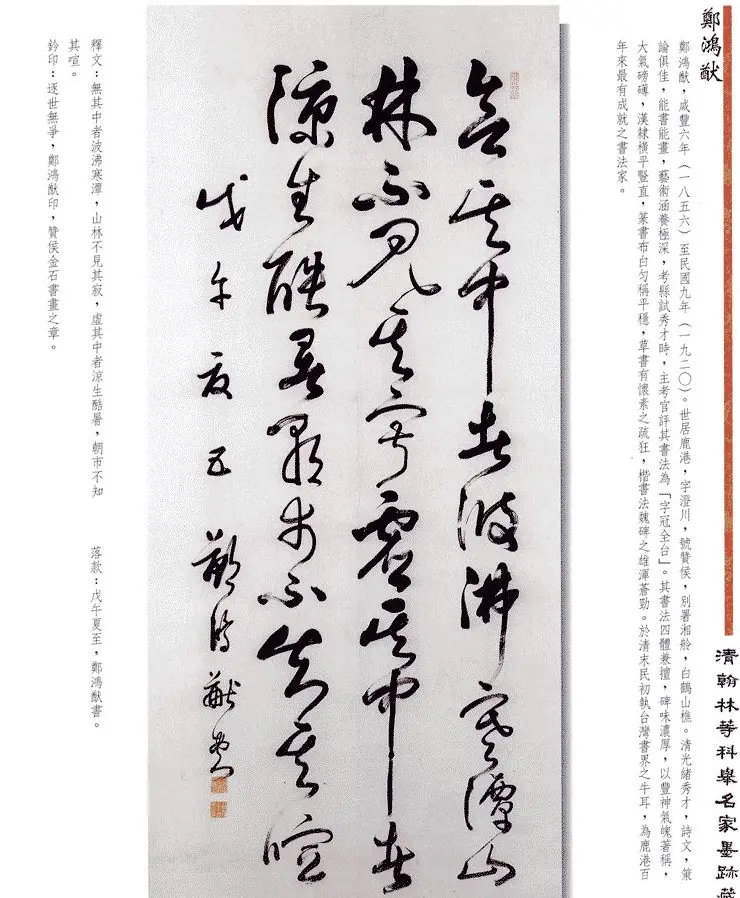 清翰林等科舉名家墨跡
鄭鴻猷
鄭鴻猷，咸豐六年（一八五六）至民國九年（一九二〇）。世居鹿港，字澄川，號贊侯，別署湘舲，白鶴山樵。清光緒秀才，詩文，策
論俱佳，能書能畫，藝術涵養極深，考縣試秀才時，主考官評其書法為「字冠全台」。其書法四體兼擅，碑味濃厚，以豐神氣魄著稱，
大氣磅礡，漢隸橫平豎直，篆書布白勻稱平穩，草書有懷素之疏狂，楷書法魏碑之雄渾蒼勁。於清末民初執台灣書界之牛耳，為鹿港百
年來最有成就之書法家。
無其中者波沸寒潭山
林不見其寂虛其中者
涼生酷暑朝市不知其喧
戊午夏至鄭鴻猷書
釋文：無其中者波沸寒潭，山林不見其寂，虛其中者涼生酷暑，朝市不知
其喧。
落款：戊午夏至，鄭鴻猷書。
鈐印：逐世無爭，鄭鴻猷印，贊侯金石書畫之章。